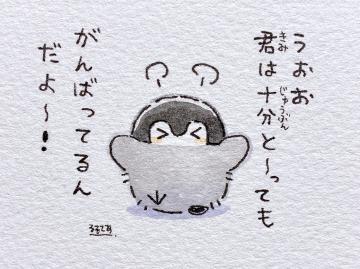 うおお
君は十分と〜っても
きみ
じゅうぶん
がんばってるん
だよ〜！
るるてあ